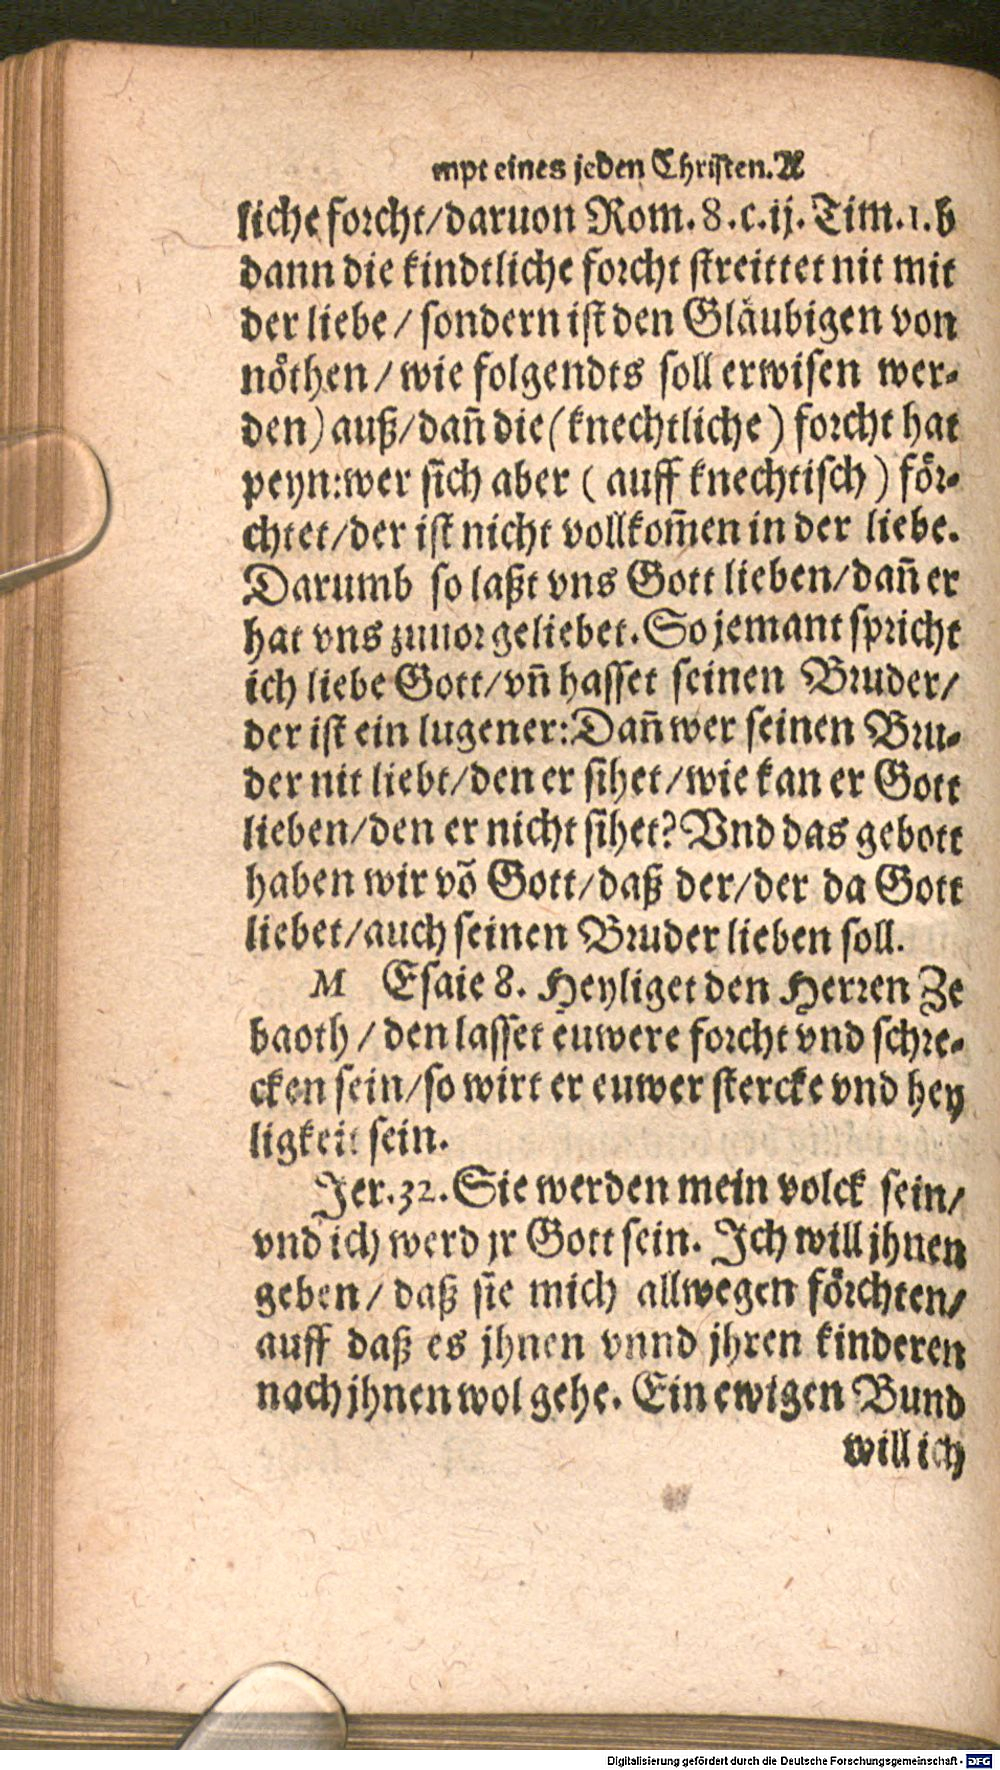 mpt eines jeden Christen. A
liche forcht/daruon Rom. 8. c. ij. Tim. 1. b
dann die kindtliche forcht streittet nit mit
der liebe / sondern ist den Gläubigen von
nöthen / wie folgendts soll erwisen wer-
den) auß/dañ die (knechtliche) forcht hat
peyn: wer sich aber ( auff knechtisch ) för-
chtet/der ist nicht vollkom̄en in der liebe.
Darumb so laßt vns Gott lieben/dañ er
hat vns zuuor geliebet. So jemant spricht
ich liebe Gott/vñ hasset seinen Bruder/
der ist ein lugener: Dañ wer seinen Bru-
der nit liebt/den er sihet/wie kan er Gott
lieben/den er nicht sihet? Vnd das gebott
haben wir võ Gott/daß der/der da Gott
liebet/auch seinen Bruder lieben soll.
M Esaie 8. Heyliget den Herren Ze
baoth / den lasset euwere forcht vnd schre-
cken sein/so wirt er euwer stercke vnd hey
ligkeit sein.
Jer. 32. Sie werden mein volck sein/
vnd ich werd jr Gott sein. Ich will jhnen
geben / daß sie mich allwegen förchten/
auff daß es jhnen vnnd jhren kinderen
nach jhnen wol gehe. Ein ewigen Bund
will ich
Digitalisierung gefördert durch die Deutsche Forschungsgemeinschaft - DFG